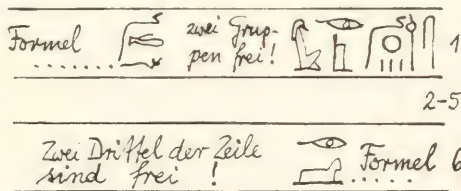 Formel ...... zwei Grup-
pen frei! 1
2-5
Zwei Drittel der Zeile
sind frei! Formel ..... 6